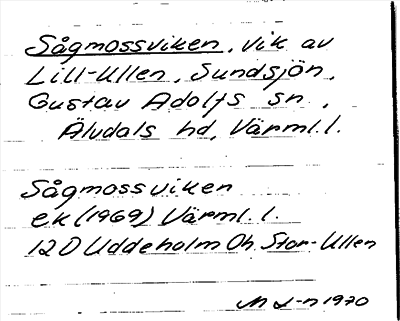 Sågmossviken, vik av
Lill-Ullen, Sundsjön,
Gustav Adolfs sn,
Älvdals hd, Värml. l.
Sågmossviken
ek (1969) Värml. l.
12 D Uddeholm Öh Stor-Ullen
M L-n 1970